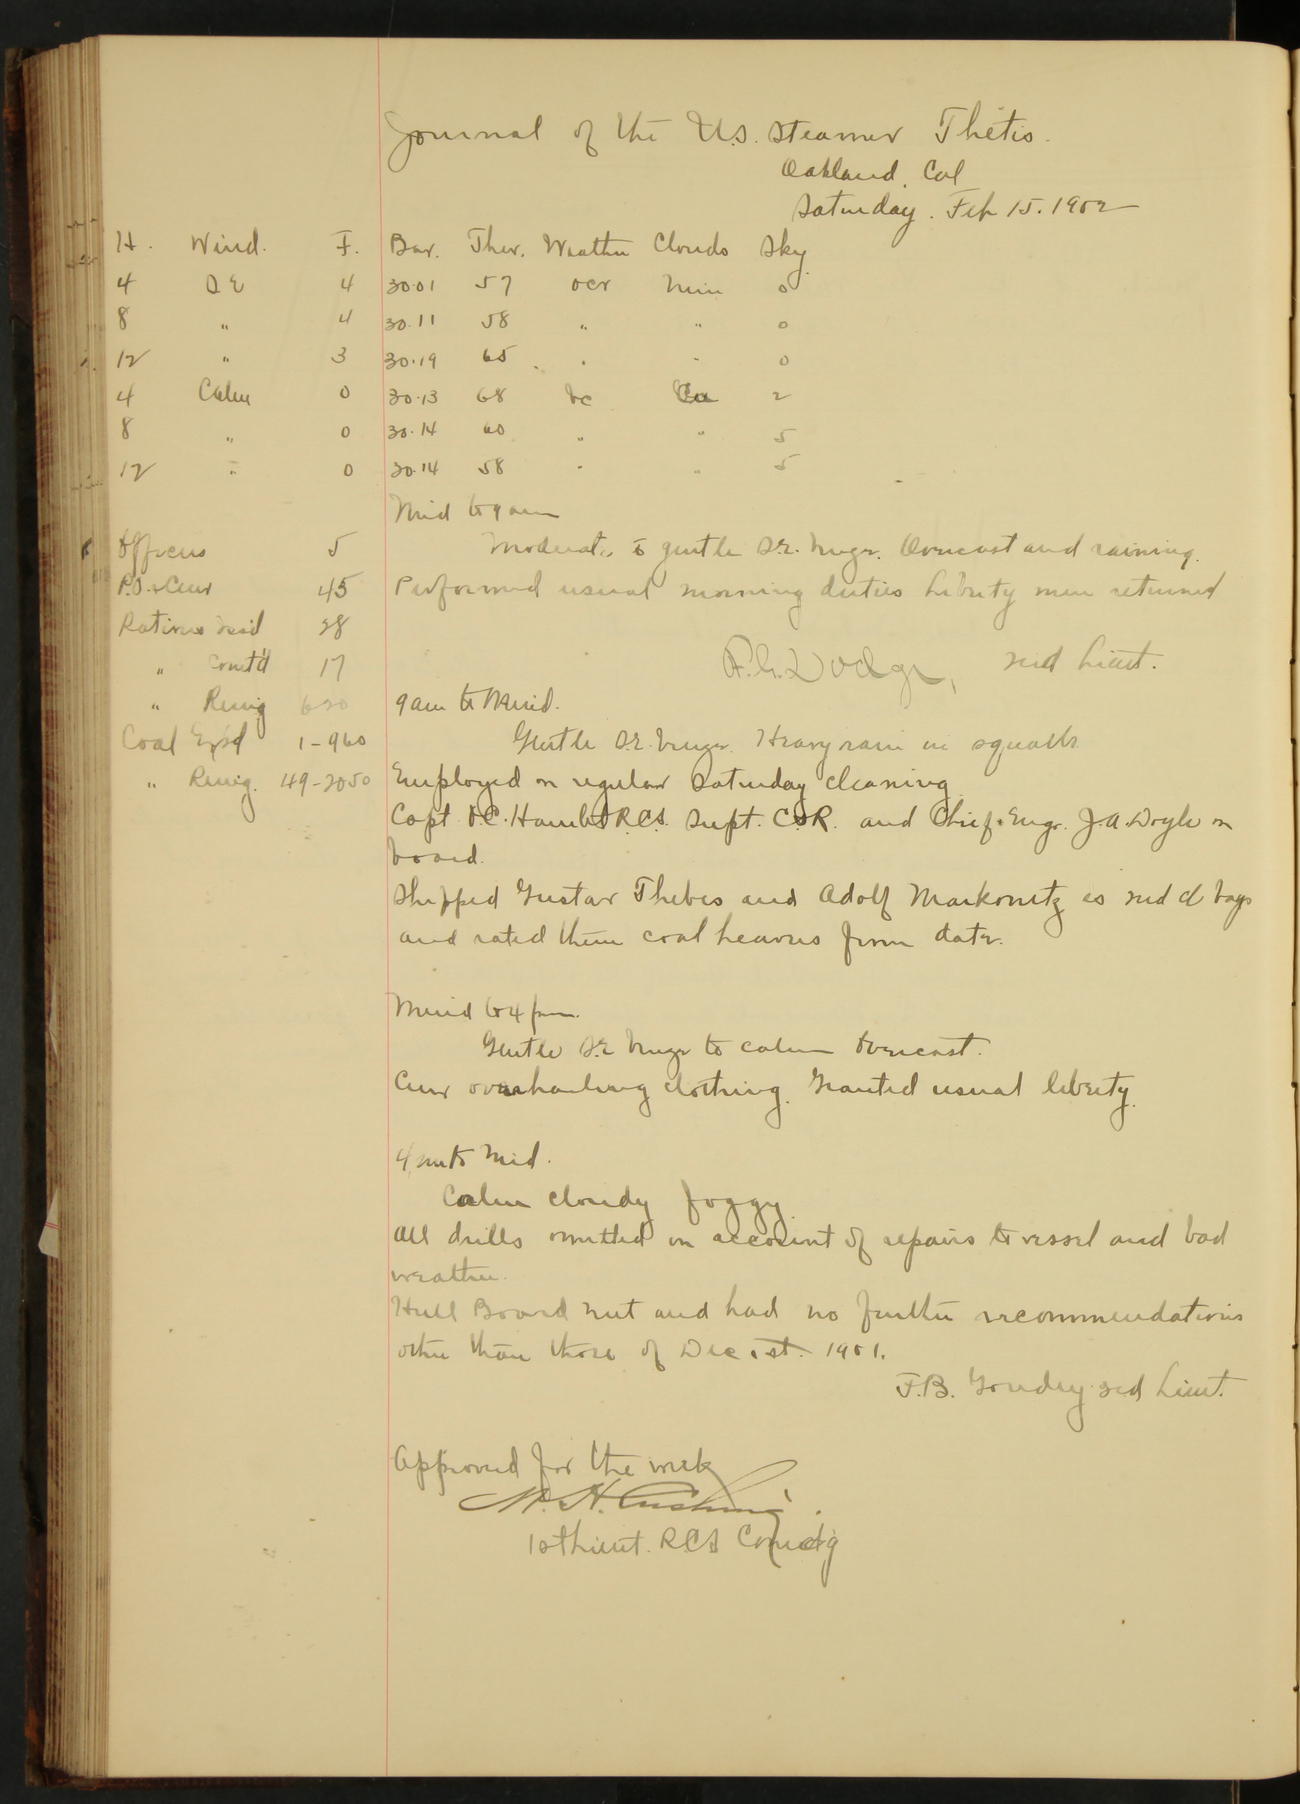 Journal of the U.S. Steamer Thetis.
Oakland, Cal
Saturday. Feb 15. 1902
H. Wind. F. Bar. Ther. Weather Clouds Sky
4 SE 4 30.01 57 ocr Nim 0
8 " 4 30.11 58 " " 0
12 " 3 30.19 65 " " 0
4 Calm 0 30.13 68 bc Cu 2
8 " 0 30.14 60 " " 5
12 " 0 30.14 58 " " 5
Mid to 9 am
Officers 5
Moderate to gentle S.E. breeze. Overcast and raining.
P.O. & Crew 45
Performed usual morning duties Liberty men returned
Rations 28
" Comt'd 17
F.G. Dodge, 2nd Lieut.
" Remig
9 am to Merid.
Coal Exp'd 1-960
Gentle S.E. breeze. Heavy rain in squalls
" Remig. 49-2050
Employed on regular Saturday cleaning
Capt. R.C.S. Supt. C&R. and Chief Engr. J.A. Doyle on
board.
Shipped Gustav Thebes and Adolf Markowitz as 2nd cl boys
and rated them coal heavers from date.
Merid to 4 pm.
Gentle S.E breeze to calm Overcast.
Crew overhauling clothing. Granted usual liberty.
4 pm to Mid.
Calm cloudy foggy.
All drills omitted on account of repairs to vessel and bad
weather.
Hull Board met and had no further recommendations
other than those of Dec. 1st. 1901.
F.B. 2nd Lieut.
Approved for the week
H. Cushing
1st Lieut. R.C.S Comd'g